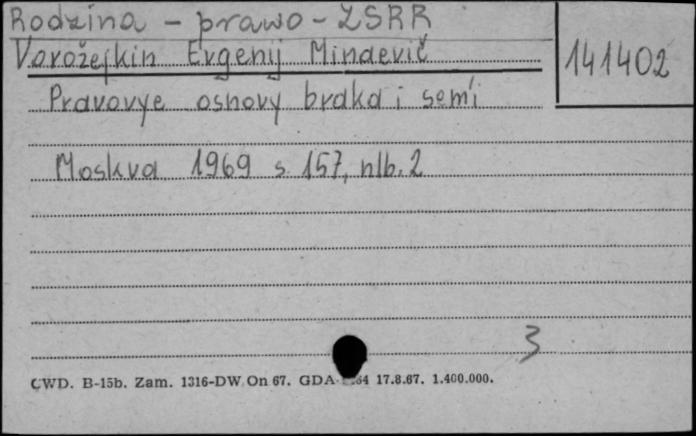 Rodzina - prawo - ZSRR
Vorožejkin Evgenij Minaevič
141402
Pravovye osnovy braka i sem'i
Moskva 1969 s. 157, nlb. 2
3
CWD. B-15b. Zam. 1316-DW On 67. GDA 64 17.8.67. 1.400.000.